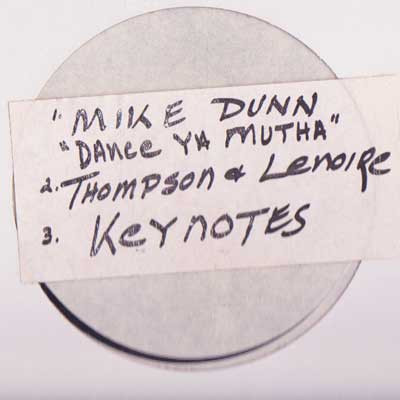 1 "MIKE DUNN
"DANCE YA MUTHA"
2. THOMPSON & LENOIRE
3. KEYNOTES